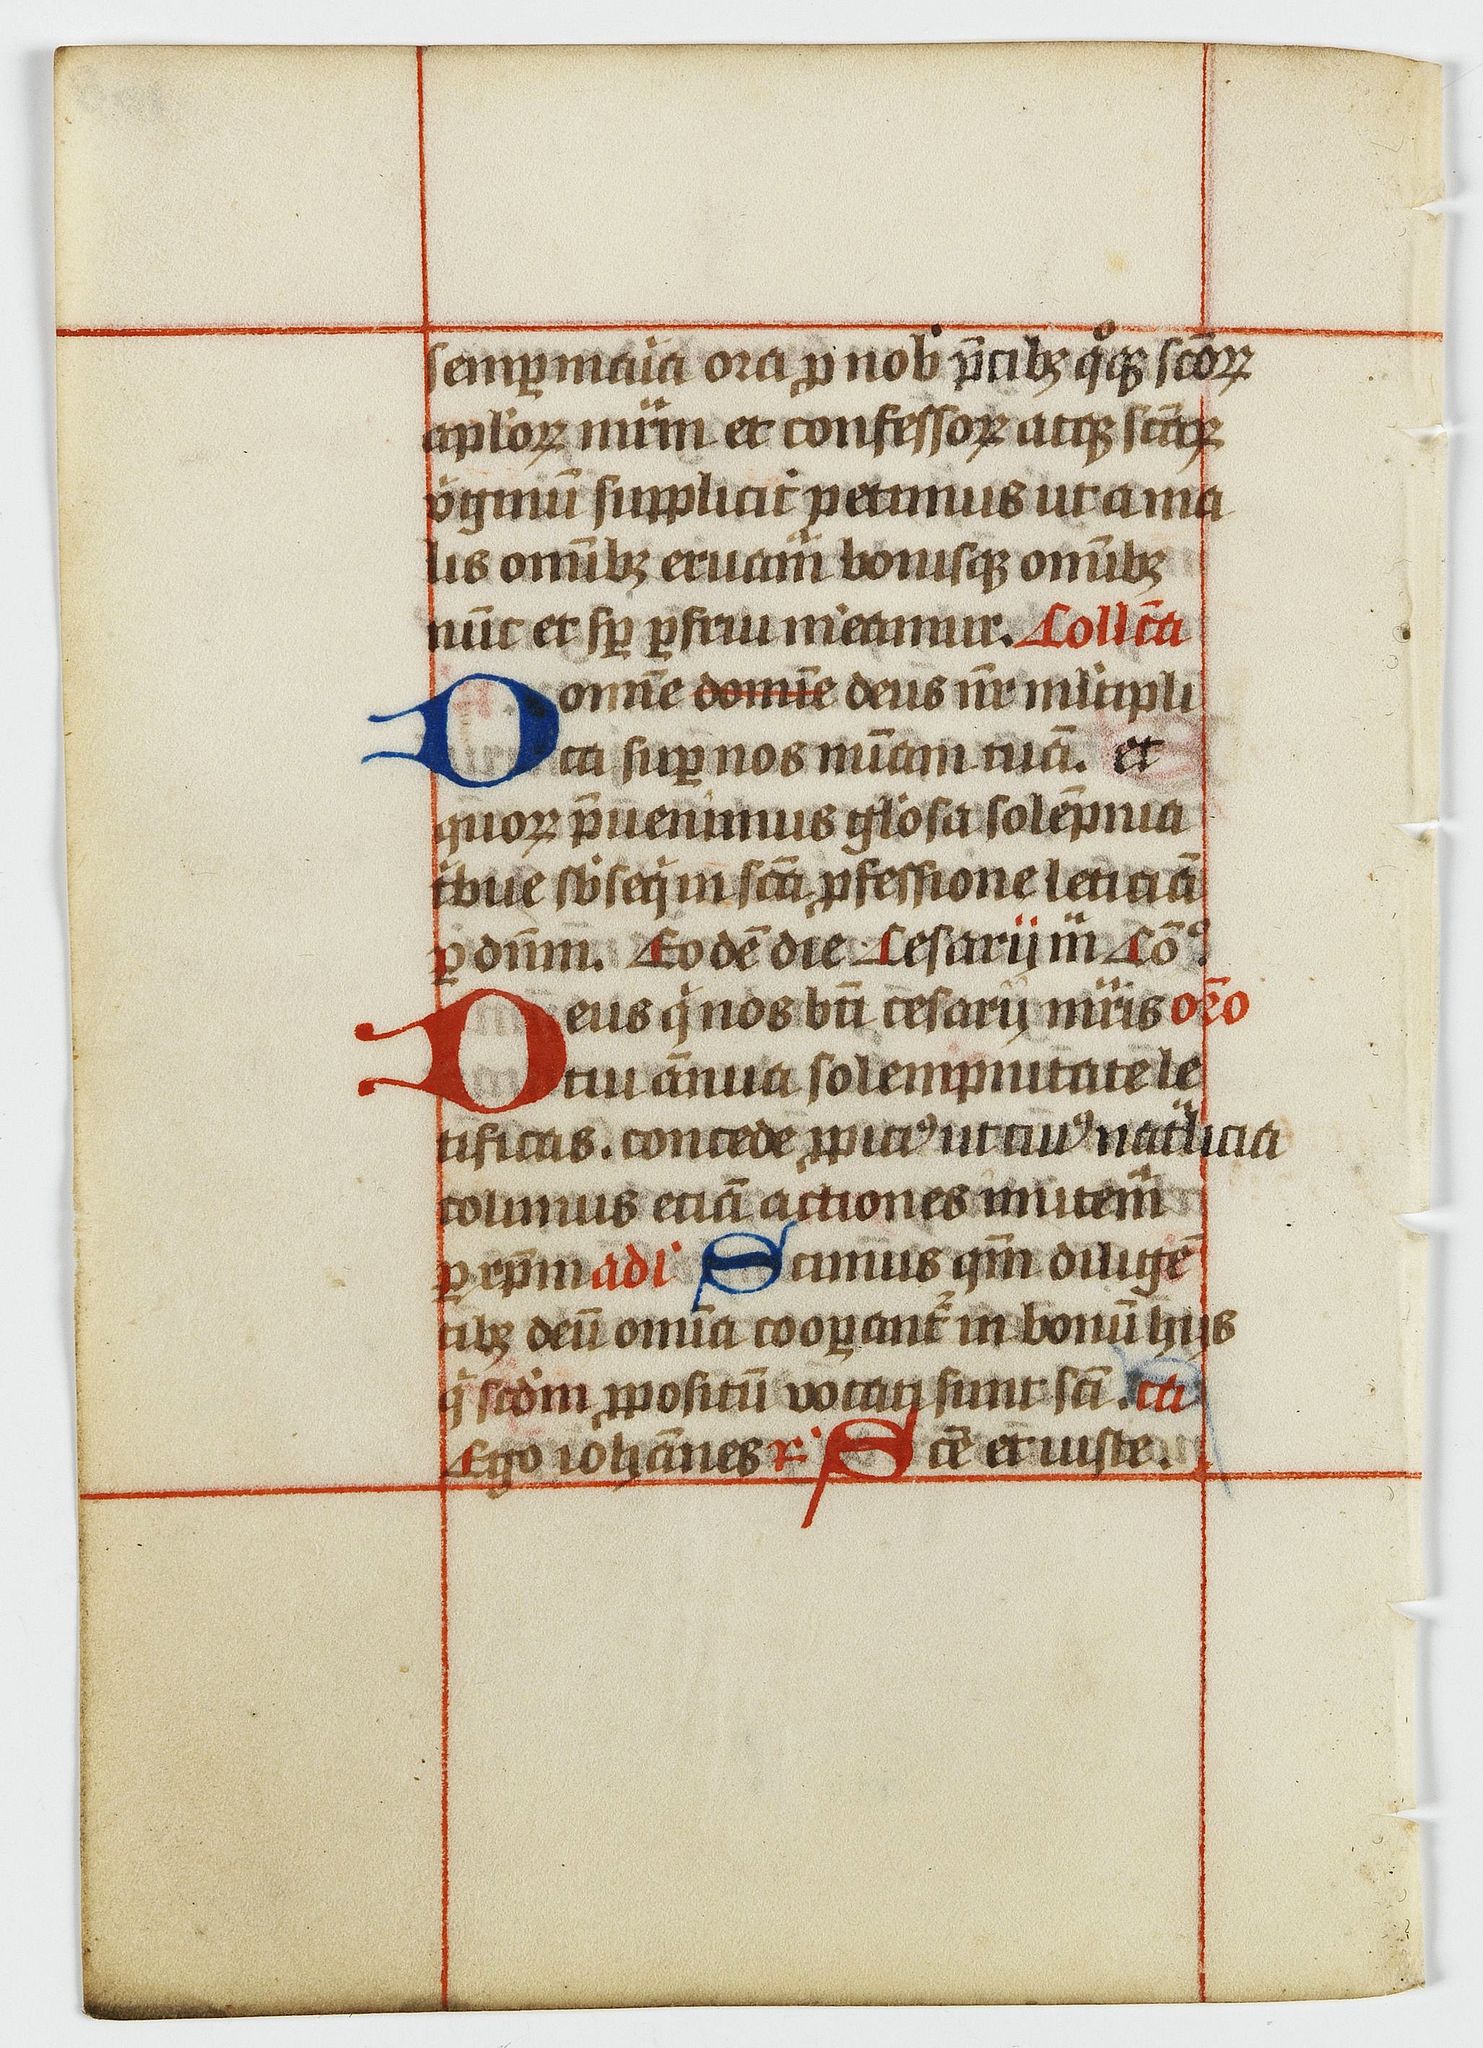 semꝑ maĩa ora ꝓ nob p̄cibꝫ qͦqꝫ sc̄oꝝ
apl'oꝝ mr̄m et confessoꝝ atqꝫ sc̄aꝝ
v̇ginū supplicit̾ petimus ut a ma
lis om̄ibꝫ eruam̄ bonisqꝫ om̄ibꝫ
nūc et sꝑ ꝑfrui m̾eamur. Coll̄ca
Domīe domīe deus nr̄ ml̾tipli
ca suꝑ nos mīam tuā. et
quoꝝ p̄uenimus gl'osa solēpnia
t̾bue sb̾seqi in sc̄a ꝓfessione leticiā
ꝑ dn̄m. Eodē die Cesarij m̄ Cōꝰ
Deus qi nos bt̄i cesarij mr̄is or̄o
tui ānua solempnitate le
tificas. concede ꝓpiciꝰ ut cuiꝰ nat̾licia
colimus eciā actiones imitem̄
ꝑ xp̄m adi Scimus qm̄ diligē
tibꝫ deū om̄ia cooꝑant᷑ in bonū hijs
qi scdm̄ ꝓpositū vocati sunt sc̄i. ca
Ego ioħānes r̾ Sc̄e et iuste.